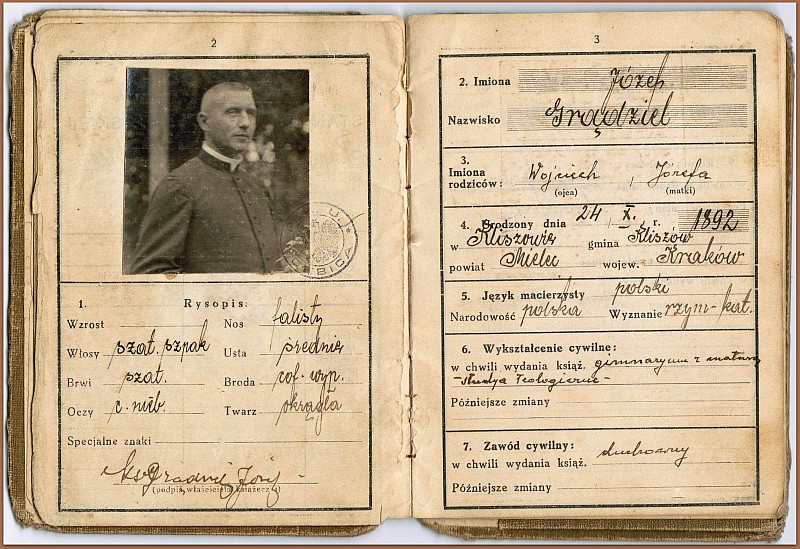 2
1. Rysopis:
Wzrost Nos falisty
Włosy szat. szpak Usta średnie
Brwi szat. Broda cof. wyp.
Oczy Twarz okrągła
Specjalne znaki
(podpis właściciela książecz.)
3
2. Imiona Józef
Nazwisko Grądziel
3.
Imiona rodziców: Wojciech, Józefa
(ojca) (matki)
4. Urodzony dnia 24 X. r. 1892
w Kliszowie gmina Kliszów
powiat Mielec wojew. Kraków
5. Język macierzysty polski
Narodowość polska Wyznanie rzym-kat.
6. Wykształcenie cywilne:
w chwili wydania książ. gimnazyum z maturą
-studya Teologiczne-
Późniejsze zmiany
7. Zawód cywilny:
w chwili wydania książ. duchowny
Późniejsze zmiany